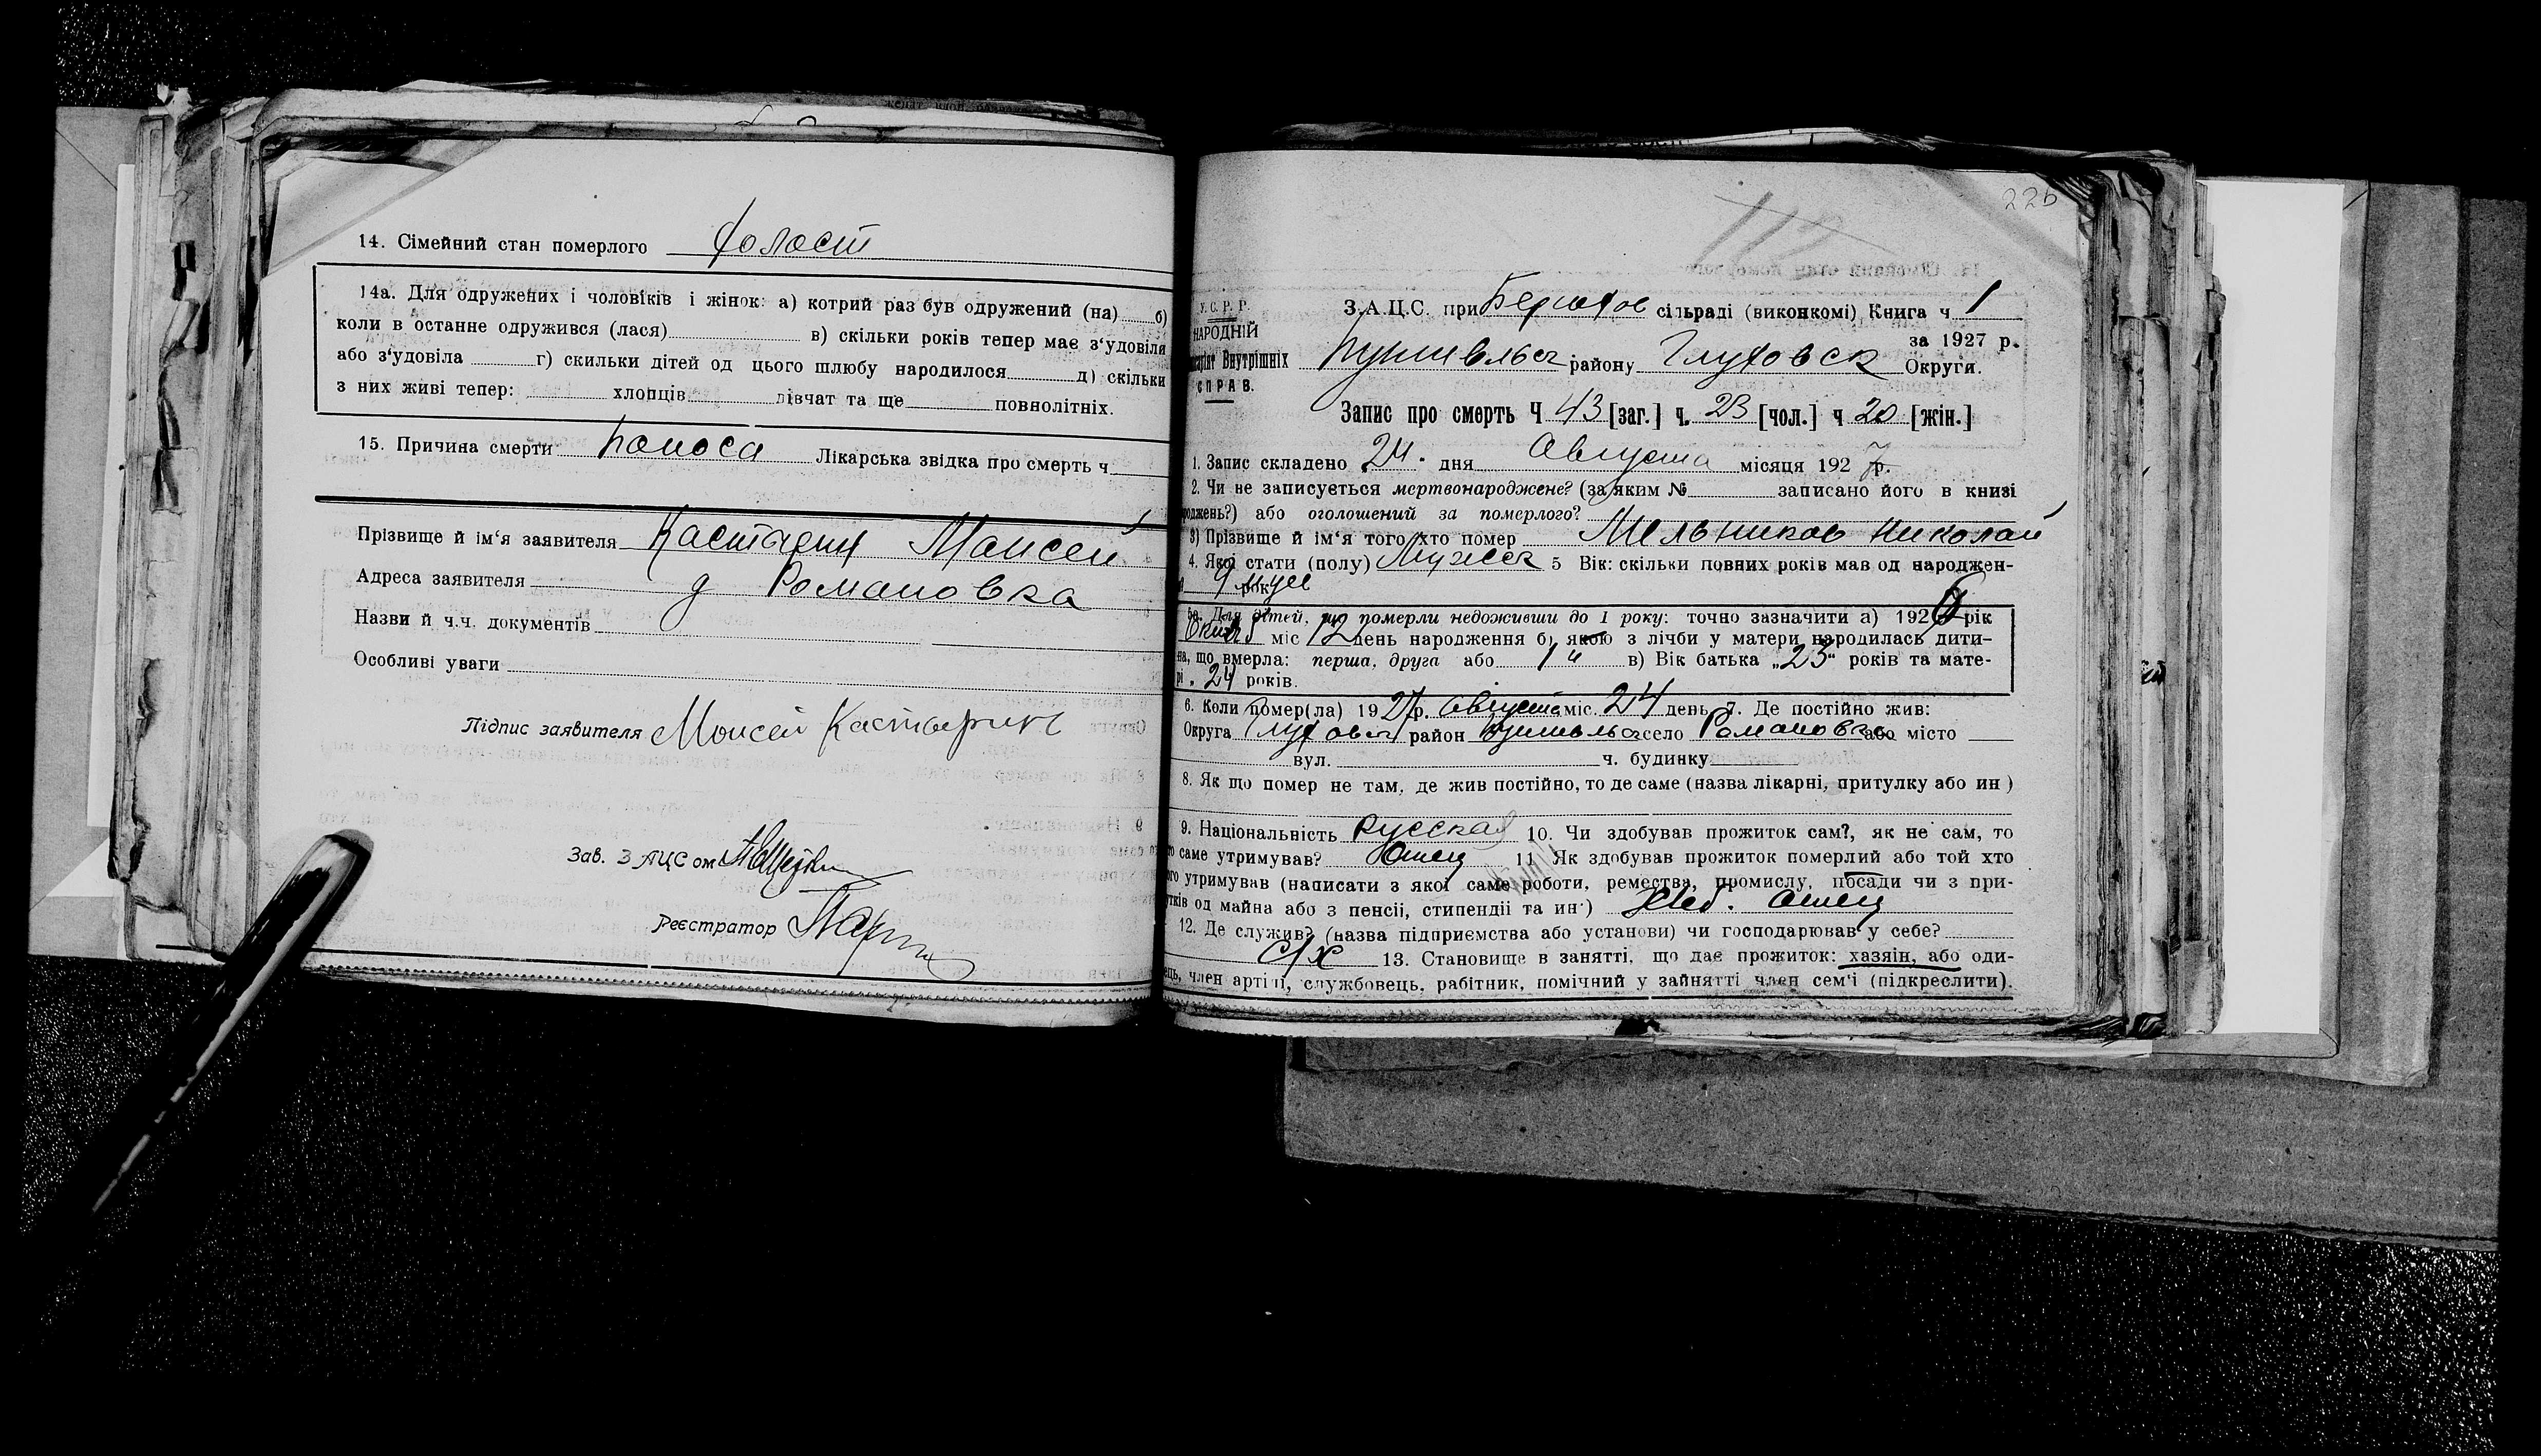 14. Сімейний стан померлого холост
14а. Для одружених і чоловіків і жінок: а) котрий раз був одружений (на) б)
коли в останне одружився (лася) в) скільки років тепер має з'удовіла
або з'удовіла г) скильки дітей од цього шлюбу народилося д) скільки
з них живі тепер: хлопців дівчат та ще повнолітніх.
15. Причина смерти поноса Лікарська звідка про смерть ч
Прізвище й ім'я заявителя Кастарин Моисей
Адреса заявителя д Романовка
Назви й ч.ч. документів
Особливі уваги
Підпис заявителя Моисей
Зав. ЗАЦС ом
Реєстратор
225
112
У.С.Р.Р.
НАРОДНІЙ
Внутрішніх
СПРАВ.
З.А.Ц.С. при сільраді (виконкомі) Книга ч 1
за 1927 р.
Путивльск району Глуховск Округи.
Запис про смерть Ч 43 [заг.] ч. 23 [чол.] ч 20 [жін.]
1. Запис складено 24. дня Августа місяця 1927 р.
2. Чи не записується мертвонароджене? (за яким № записано його в книзі
роджень?) або оголошений за померлого?
3) Прізвище й ім'я того хто помер Мельников Николай
4. Якої стати (полу) Мужск 5 Вік: скільки повних років мав од народжен-
рок
5а. Для дітей, що померли недоживши до 1 року: точно зазначити а) 1926 рік
міс 12 день народження б) якою з лічби у матери народилась дити-
на, що вмерла: перша, друга або 1 в) Вік батька „23“ років та мате-
рі „ 24 років.
6. Коли помер(ла) 1927 р. августа міс. 24 день 7. Де постійно жив:
Округа Глуховск район Путивльск село Романовка або місто
вул. ч. будинку
8. Як що помер не там, де жив постійно, то де саме (назва лікарні, притулку або ин )
9. Національність русская 10. Чи здобував прожиток сам?, як не сам, то
то саме утримував? Отец 11 Як здобував прожиток померлий або той хто
його утримував (написати з якої саме роботи, ремества, промислу, посади чи з при-
утків од майна або з пенсії, стипендії та ин·) Хлеб. отец
12. Де служив? (назва підприємства або установи) чи господарював у себе?
с/х 13. Становище в занятті, що дає прожиток: хазяін, або оди-
ець, член артілі, службовець, рабітник, помічний у зайнятті член сем'ї (підкреслити).